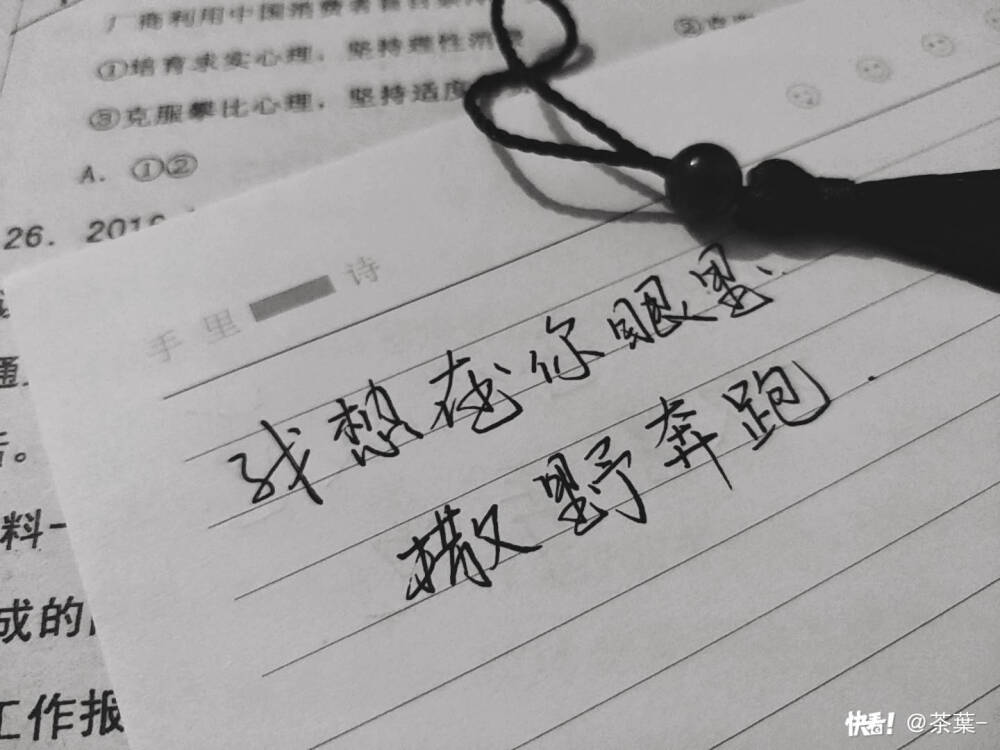 厂商利用中国消费者
①培育求实心理，坚持理性消费
③克服攀比心理，坚持适度
A. ①②
26. 2016
通
。
料一
成的
工作报
手里 诗
我想在你眼里、
撒野奔跑.
快看! @茶葉-